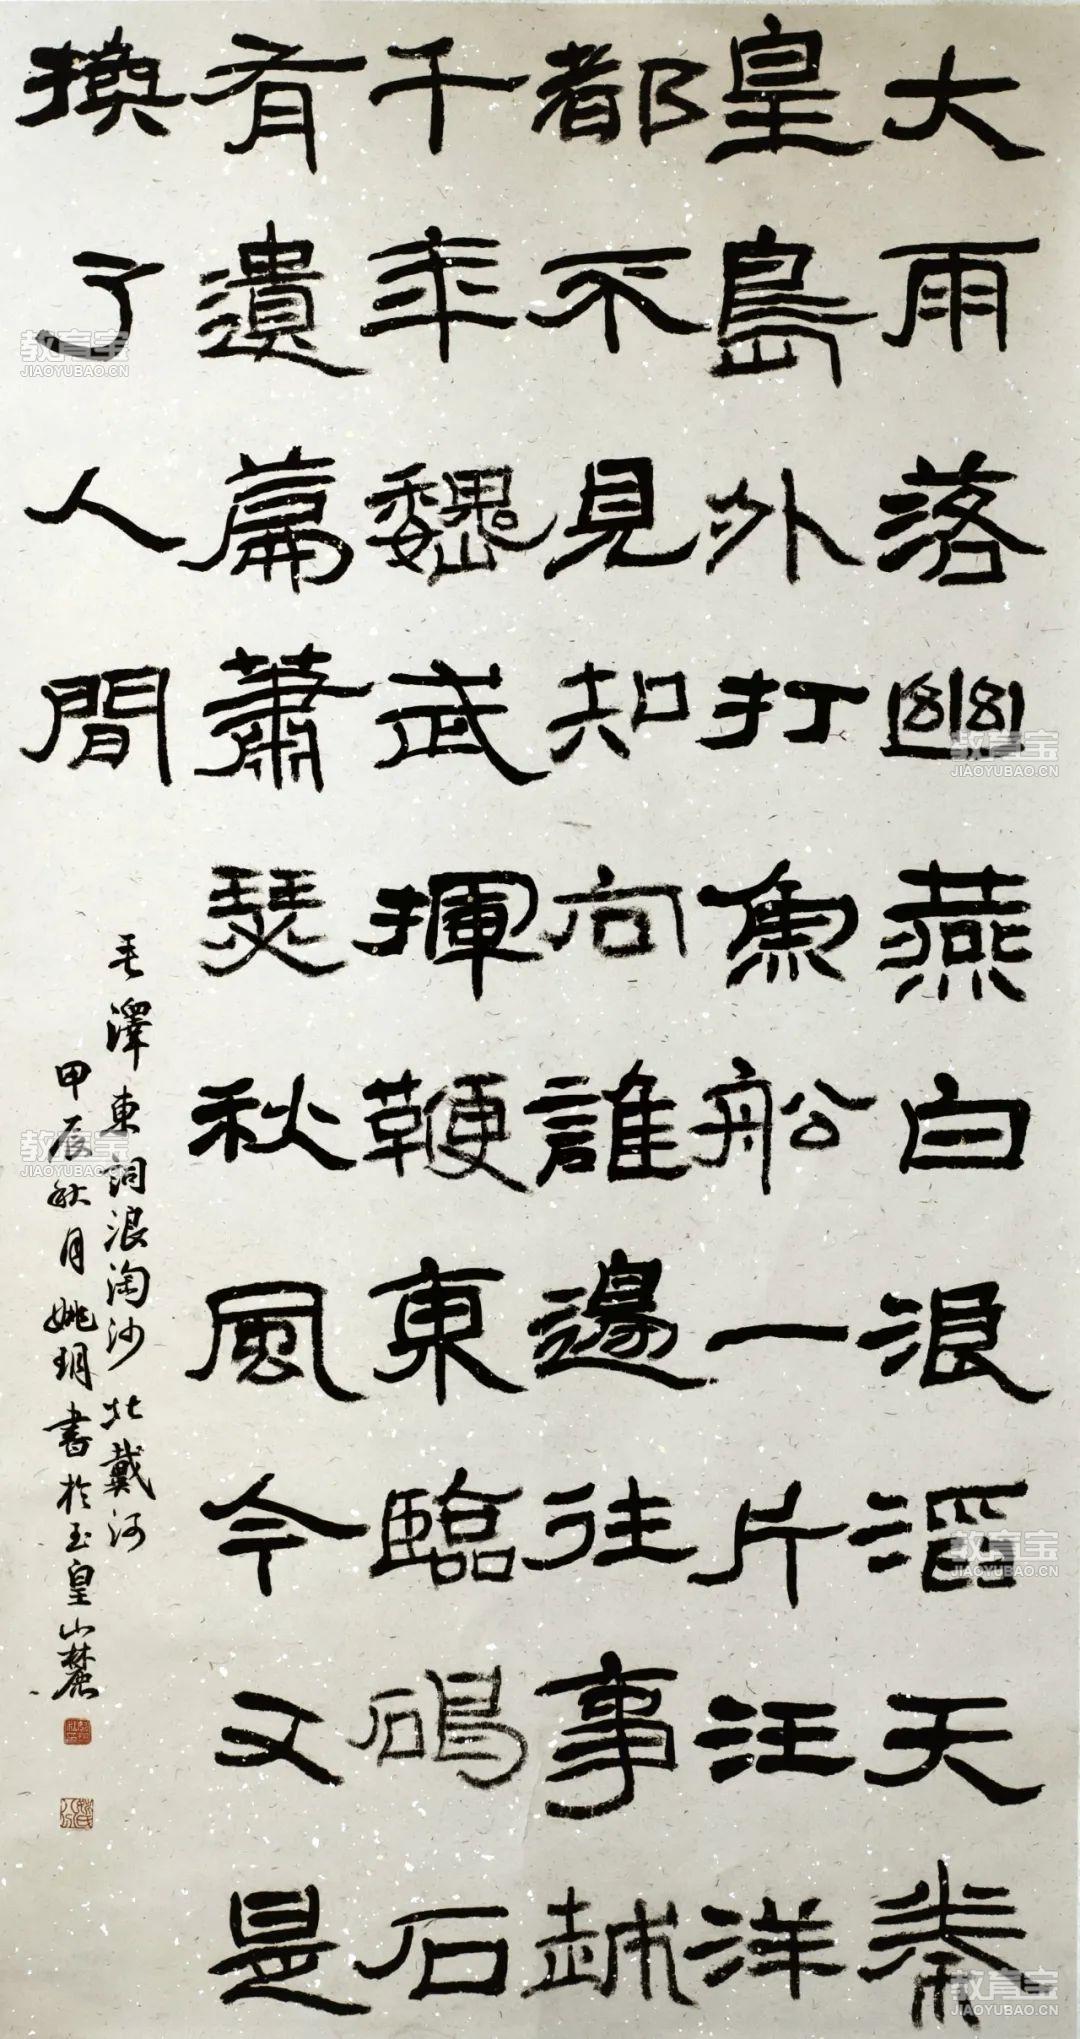 大雨落幽燕白浪滔天秦
皇島外打魚船一片汪洋
都不見知向誰邊往事越
千年魏武揮鞭東臨碣石
有遺篇蕭瑟秋風今又是
換了人間
毛澤東詞浪淘沙北戴河
甲辰秋月姚玥書於玉皇山麓
教育宝
JIAOYUBAO.CN
教育宝
JIAOYUBAO.CN
教育宝
JIAOYUBAO.CN
教育宝
JIAOYUBAO.CN
教育宝
JIAOYUBAO.CN